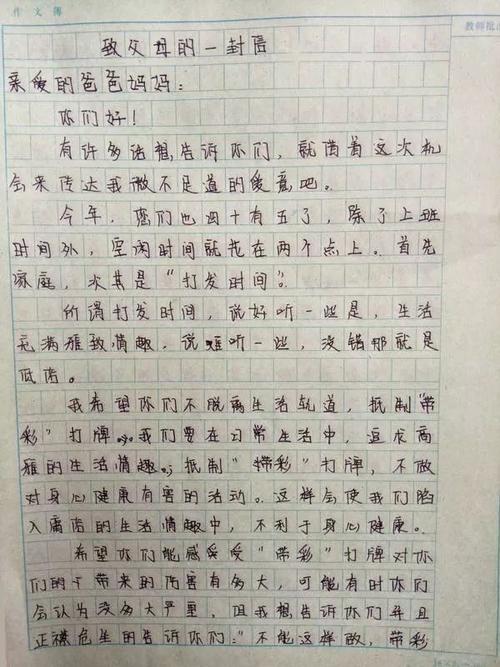 作文簿
教师批
致父母的一封信
亲爱的爸爸妈妈：
你们好！
有许多话想告诉你们，就借着这次机
会来传达我微不足道的爱意吧。
今年，您们也四十有五了，除了上班
时间外，空闲时间就花在两个点上。首先
家庭，次其是“打发时间”。
所谓打发时间，说好听一些是，生活
充满雅致情趣，说难听一些，没错那就是
低俗。
我希望你们不脱离生活轨道，抵制“带
彩”打牌。我们要在日常生活中，追求高
雅的生活情趣。抵制“带彩”打牌，不做
对身心健康有害的活动。这样会使我们陷
入庸俗的生活情趣中，不利于身心健康。
希望你们能感受受“带彩”打牌对你
们的带来的伤害有多大，可能有时你们
会认为没多大严重，但我想告诉你们并且
正襟危坐的告诉你们：“不能这样做，带彩